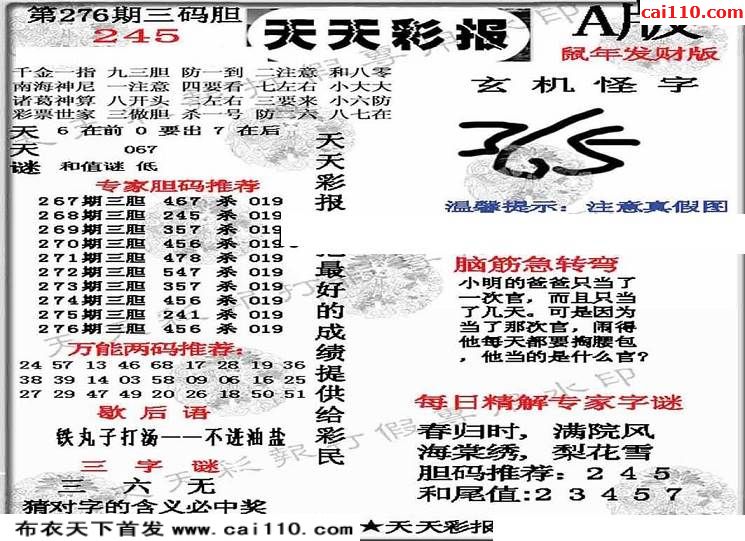 第276期三码胆
245
天天彩报
A版
cai110.com
鼠年发财版
千金一指 九三胆 防一到 二注意 和八零
南海神尼 一注意 四要看 七左右 小大大
诸葛神算 八开头 二左右 三要来 小六防
彩票世家 三做胆 杀一号 防二六 八七在
天 6 在前 0 要出 7 在后
天 067
谜 和值谜 低
专家胆码推荐
267期三胆 467 杀 019
268期三胆 245 杀 019
269期三胆 357 杀 019
270期三胆 456 杀 019
271期三胆 478 杀 019
272期三胆 547 杀 019
273期三胆 357 杀 019
274期三胆 456 杀 019
275期三胆 241 杀 019
276期三胆 456 杀 019
万能两码推荐:
24 57 13 46 68 17 28 19 36
38 39 14 03 58 09 06 16 25
27 29 47 49 20 26 18 50 51
歇后语
铁丸子打汤——不进油盐
三字谜
三 六 无
猜对字的含义必中奖
天天彩报
最好的成绩提供给彩民
玄机怪字
365
温馨提示: 注意真假图
脑筋急转弯
小明的爸爸只当了
一次官, 而且只当
了几天。可是因为
当了那次官, 闹得
他每天都要掏腰包
, 他当的是什么官?
每日精解专家字谜
春归时, 满院风
海棠绣, 梨花雪
胆码推荐: 2 4 5
和尾值:2 3 4 5 7
布衣天下首发 www.cai110.com
★天天彩报